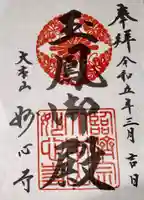 奉拝 令和五年三月吉日
玉鳳御殿
大本山
妙心寺